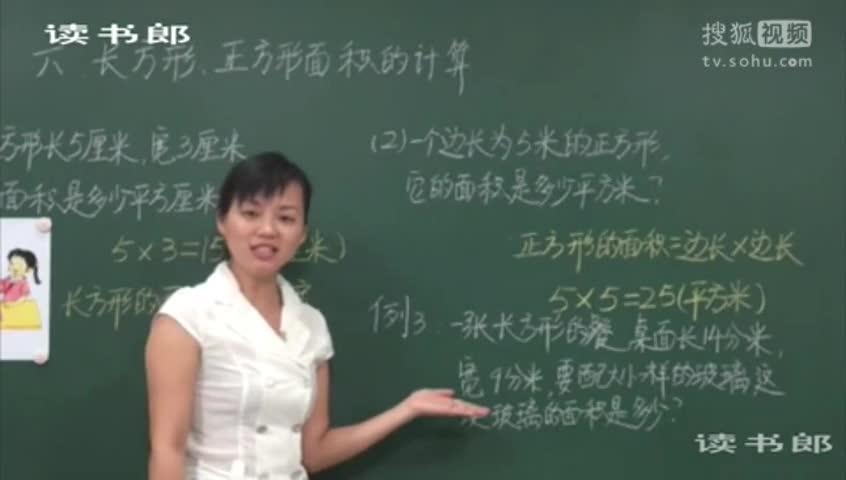 读书郎
搜狐视频
tv.sohu.com
六、长方形、正方形面积的计算
方形长5厘米,宽3厘米
面积是多少平方厘米
5×3=15
米)
长方形的
(2)一个边长为5米的正方形,
它的面积是多少平方米?
正方形的面积=边长×边长
5×5=25(平方米)
例3:一张长方形的餐桌,桌面长14分米,
宽9分米,要配大小一样的玻璃,这
玻璃的面积是多少?
读书郎